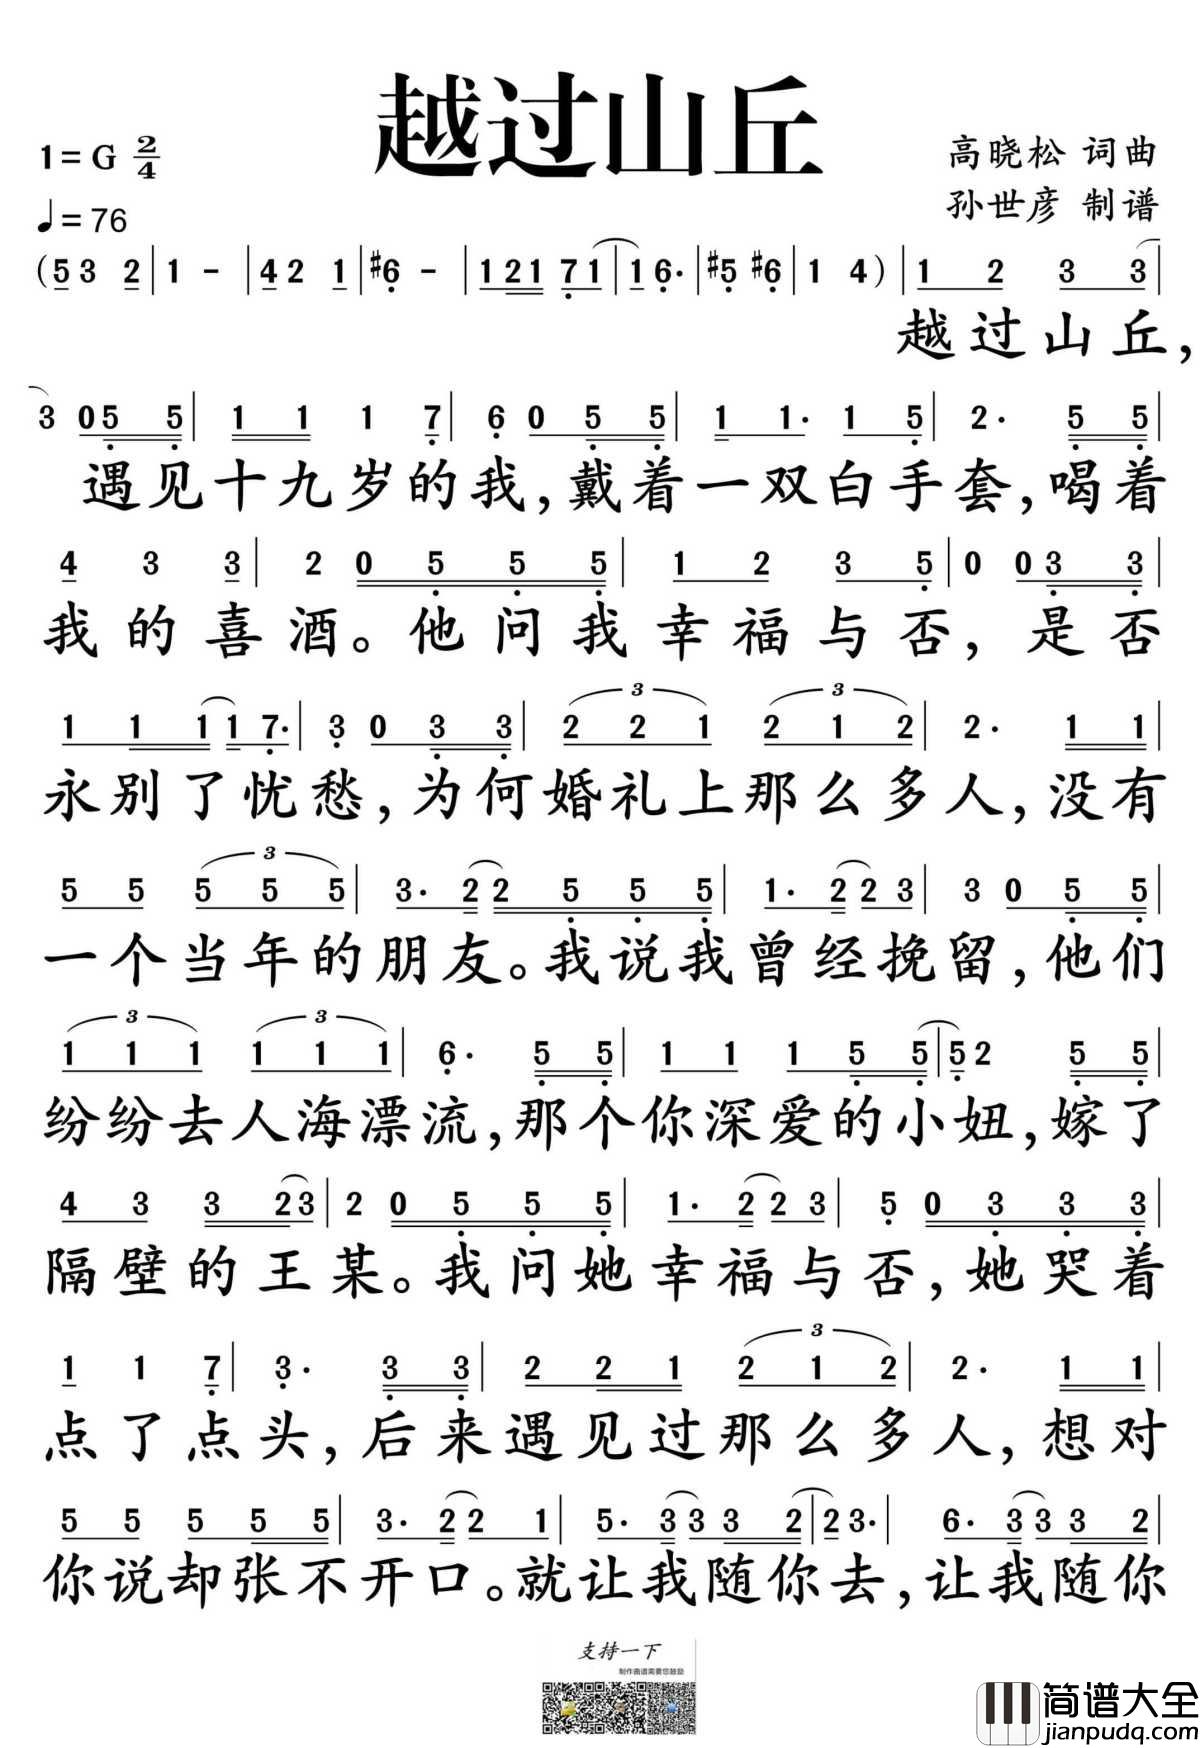 越过山丘
1=G 2/4
高晓松 词曲
♩=76
孙世彦 制谱
(5 3 2 | 1 - | 4 2 1 | #6 - | 1 2 1 7 1 | 1 6· | #5 #6 | 1 4) | 1 2 3 3 |
越过山丘，
3 0 5 5 | 1 1 1 7 | 6 0 5 5 | 1 1· 1 5 | 2· 5 5 |
遇见十九岁的我，戴着一双白手套，喝着
4 3 3 | 2 0 5 5 5 | 1 2 3 5 | 0 0 3 3 |
我的喜酒。他问我幸福与否，是否
1 1 1 1 7· | 3 0 3 3 | 2 2 1 2 1 2 | 2· 1 1 |
永别了忧愁，为何婚礼上那么多人，没有
5 5 5 5 5 | 3· 2 2 5 5 5 | 1· 2 2 3 | 3 0 5 5 |
一个当年的朋友。我说我曾经挽留，他们
1 1 1 1 1 1 | 6· 5 5 | 1 1 1 5 5 | 5 2 5 5 |
纷纷去人海漂流，那个你深爱的小妞，嫁了
4 3 3 2 3 | 2 0 5 5 5 | 1· 2 2 3 | 5 0 3 3 3 |
隔壁的王某。我问她幸福与否，她哭着
1 1 7 | 3· 3 3 | 2 2 1 2 1 2 | 2· 1 1 |
点了点头，后来遇见过那么多人，想对
5 5 5 5 5 | 3· 2 2 1 | 5· 3 3 3 2 | 2 3· | 6· 3 3 3 2 |
你说却张不开口。就让我随你去，让我随你
支持一下
制作曲谱需要您鼓励
简谱大全
jianpudq.com